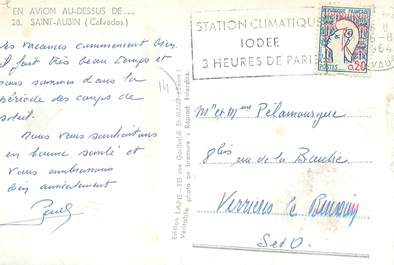 EN AVION AU-DESSUS DE...
28. SAINT-AUBIN (Calvados)
vacances commencent bien
il fait très beau temps et
nous sommes dans la
période des coups de
soleil.
Nous vous souhaitons
en bonne santé et
vous embrassons
bien amicalement
Edition LAPIE - 125 rue Garibaldi St-MAUR (Seine)
Véritable photo au bromure - Reprod. Interdite.
STATION CLIMATIQUE
IODEE
3 HEURES DE PARIS
REPUBLIQUE FRANCAISE
POSTES 0,20
1964
Mr et Mme Pélamourgue
8 bis rue de la
Verrières le Buisson
S et O.